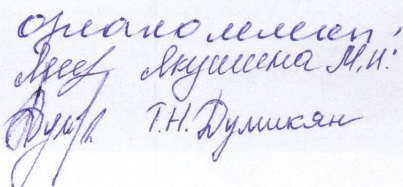 ознакомлены:
Якушина М.И.
Т.Н. Думикян